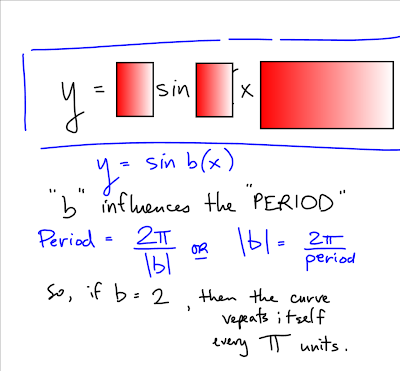 y = sin x
y = sin b(x)
"b" influences the "PERIOD"
Period = 2π/|b| OR |b| = 2π/period
So, if b = 2, then the curve
repeats itself
every π units.